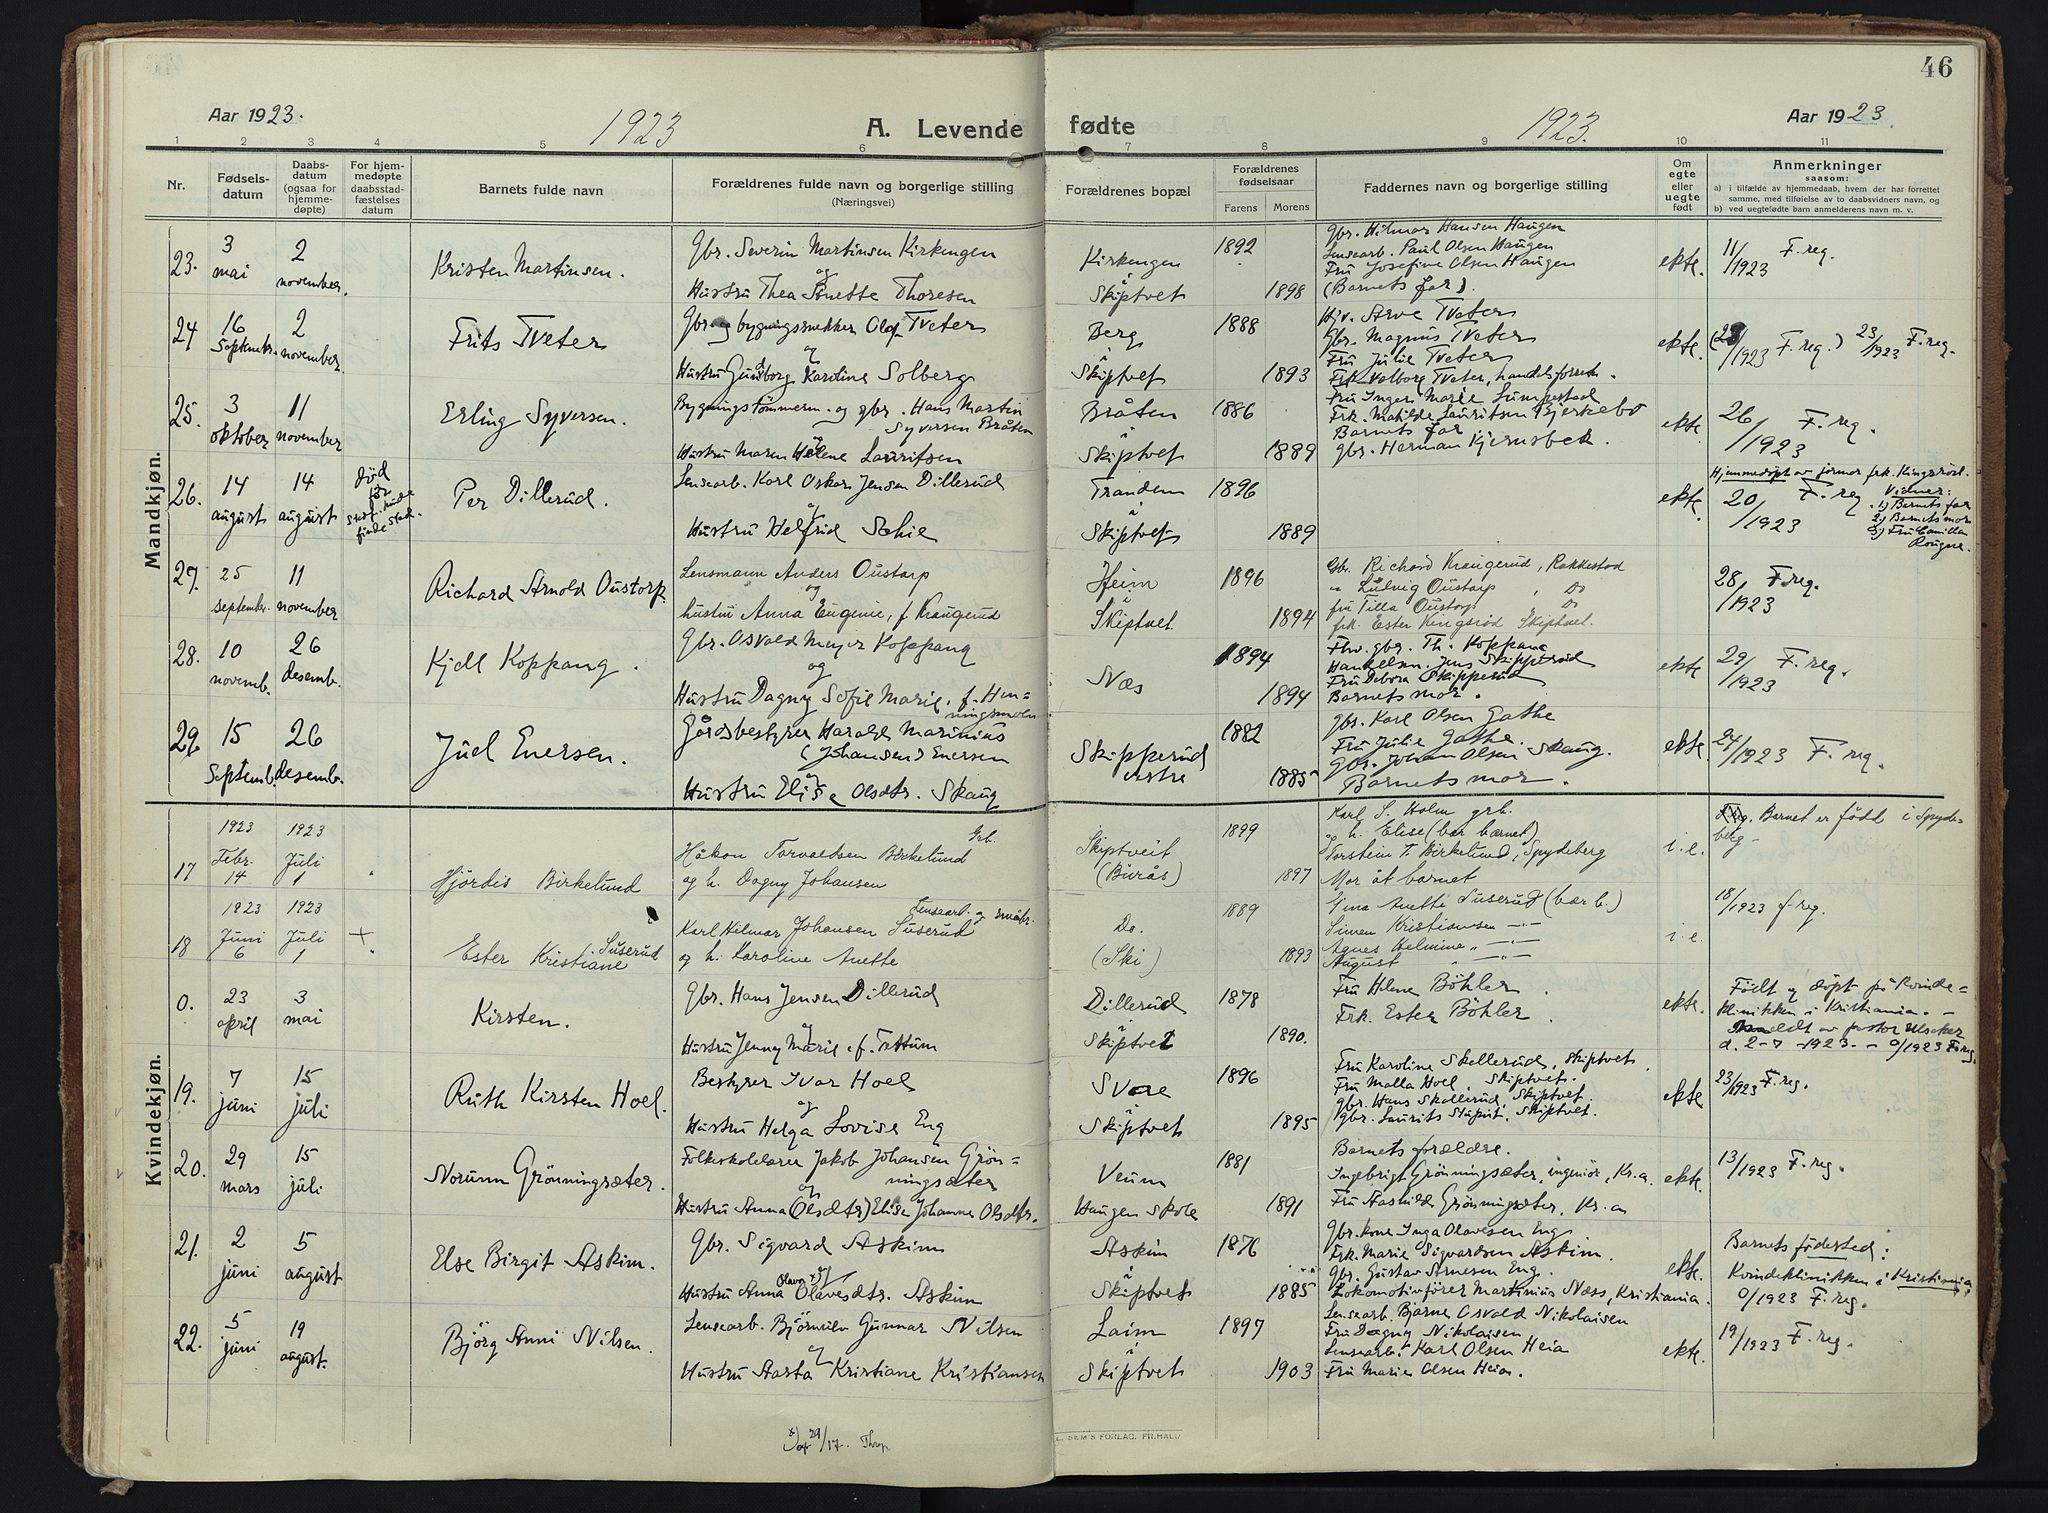 46
Aar 1923.
1923
A. Levende fødte
1923.
Aar 1923.
1 2 3 4 5 6 7 8 9 10 11
Nr.
Fødsels-
datum
Daabs-
datum
(ogsaa for
hjemme-
døpte)
For hjem-
medøpte
daabsstad-
fæstelses
datum
Barnets fulde navn
Forældrenes fulde navn og borgerlige stilling
(Næringsvei)
Forældrenes bopæl
Forældrenes
fødselsaar
Farens Morens
Faddernes navn og borgerlige stilling
Om
egte
eller
uegte
født
Anmerkninger
saasom:
a) i tilfælde av hjemmedaab, hvem der har forrettet
samme, med tilføielse av to daabsvidners navn, og
b) ved uegtefødte barn anmelderens navn m. v.
Mandkjøn.
23. 3 mai 2 november.
Kristen Martinsen.
Gbr. Severin Martinsen Kirkengen
og
Hustru Thea Anette Thoresen
Kirkengen i Skiptvet
1892 1898
Gbr. Hilmar Hansen Haugen
Lensearb. Paul Olsen Haugen
Fru Josefine Olsen Haugen
(Barnets far).
ekte.
11/1923 F. reg.
24 16 septembr. 2 november.
Frits Tveter
Gbr. og bygningssnekker Olaf Tveter
og
Hustru Gunborg Karoline Solberg
Berg i Skiptvet
1888 1893
Gbr. Magnus Tveter
Fru Julie Tveter
Frk. Valborg Tveter, handelsforret.
ekte.
(23/1923 F. reg.) 23/1923 F. reg.
25. 3 oktober 11 november
Erling Syversen.
Bygningstømmerm. og gbr. Hans Martin
Syversen Bråten
og
Hustru Maren Helene Lauritsen
Bråten i Skiptvet
1886 1889
Fru Inger Marie Lumpestad
Frk. Matilde Lauritsen Bjerkebo
Barnets far
Gbr. Herman Kjernsbek.
ekte.
26/1923 F. reg.
26. 14 august 14 august
død
før
Per Dillerud.
Lensearb. Karl Oskar Jensen Dillerud
og
Hustru Helfrid Sæhie
Trandem i Skiptvet
1896 1889
ekte.
Hjemmedøpt av jormor frk. Kingsrød.
20/1923 F. reg
Vidner:
1) Barnets far
2) Barnets mor
3) Fru Camilla
Rougne.
27. 25 septembr. 11 november
Richard Arnold Oustorp.
Lensmann Anders Oustorp
og
hustru Anna Eugenie, f. Kraugerud
Heim i Skiptvet
1896 1894
Gbr. Richard Kraugerud, Rakkestad
" Ludvig Oustorp, Do
fru Tilla Oustorp Do
frk. Ester Kingsrød Skiptvet.
28/1923 F. reg.
28. 10 novemb. 26 desemb.
Kjell Koppang.
Gbr. Osvald Meyer Koppang
og
Hustru Dagny Sofie Marie, f. Hen=
ningsmoen
Næs
1894 1894
Fhv. gbr. Th. Koppang
Handelsm. Jens Skipperud
Fru Debora Skipperud
Barnets mor.
ekte
29/1923 F. reg.
29. 15 septemb. 26 desemb.
Juel Enersen.
Gårdsbestyrer Harald Marinius
(Johansen) Enersen
og
Hustru Elise Olsdtr. Skaug
Skipperud østre
1882 1885
Gbr. Karl Olsen Gathe
Fru Julie Gathe.
Gbr. Johan Olsen Skaug.
Barnets mor.
ekte.
24/1923 F. reg.
Kvindekjøn.
17 1923 Febr. 14 1923 Juli 1
Hjørdis Birkelund
Grb.
Håkon Torvaldsen Birkelund
og h. Dagny Johansen
Skiptveit (Burås)
1899 1897
Karl S. Holm grb.
og h. Elise (bar barnet)
Torstein T. Birkelund, Spydeberg
Mor åt barnet
i. e.
Barnet er född i Spyde-
berg
18 1923 Juni 6 1923 Juli 1 +
Ester Kristiane Suserud
Lensearb. og småbr.
Karl Hilmar Johansen Suserud
og h. Karoline Anette
Do. (Ski)
1889 1893
Gina Anette Suserud (bær b.)
Simen Kristiansen
Agnes Helmine
August
i. e.
18/1923 f. reg.
0. 23 april 3 mai
Kirsten.
Gbr. Hans Jensen Dillerud
og
Hustru Jenny Marie f. Tettum
Dillerud i Skiptvet
1878 1890.
Fru Helene Böhler.
Frk. Ester Böhler.
ekte.
Født og døpt på Kvinde=
klinikken i Kristiania. -
av pastor Ulsaker
d. 2-7-1923. - 0/1923 F. reg.
19. 7 juni 15 juli
Ruth Kirsten Hoel.
Bestyrer Ivar Hoel
og
Hustru Helga Lovise Eng
Svere i Skiptvet
1896 1895
Fru Karoline Skellerud, Skiptvet.
Fru Malla Hoel, Skiptvet.
Gbr. Hans Skellerud, Skiptvet.
Gbr. Laurits Stuput, Skiptvet.
ekte
23/1923 F. reg.
20. 29 mars 15 juli
Norunn Grönningsæter.
Folkeskolelærer Jakob Johansen Grön=
ningsæter
og
Hustru Anna (Olsdtr) Elise Johanne Olsdtr.
Veum Haugen Skole
1881 1891
Barnets forældre.
Ingebrigt Grönningsæter, ingeniør, Kr.a.
Fru Aashild Grönningsæter, Kr.a
ekte.
13/1923 F. reg.
21. 2 juni 5 august
Else Birgit Askim.
Gbr. Sigvard Askim
og
Hustru Anna Olavesdtr. Askim
Askim i Skiptvet
1876 1885
Gbr.kone Inga Olavesen Eng.
Frk. Marie Sigvardsen Askim.
Gbr. Gustav Arnesen Eng.
Lokomotivfører Martinius Næss, Kristiania.
ekte.
Barnets födested:
Kvindeklinikken i Kristiania.
0/1923 F. reg.
22. 5 juni 19 august.
Björg Anni Nilsen.
Lensearb. Björnulv Gunnar Nilsen
og
Hustru Aasta Kristiane Kristiansen
Laim i Skiptvet
1897 1903
Lensearb. Bjarne Osvald Nikolaisen
Fru Dagny Nikolaisen
Lensearb. Karl Olsen Heia
Fru Marie Olsen Heia.
ekte.
19/1923 F. reg.
29/17.
SEM'S FORLAG, FR.HALD